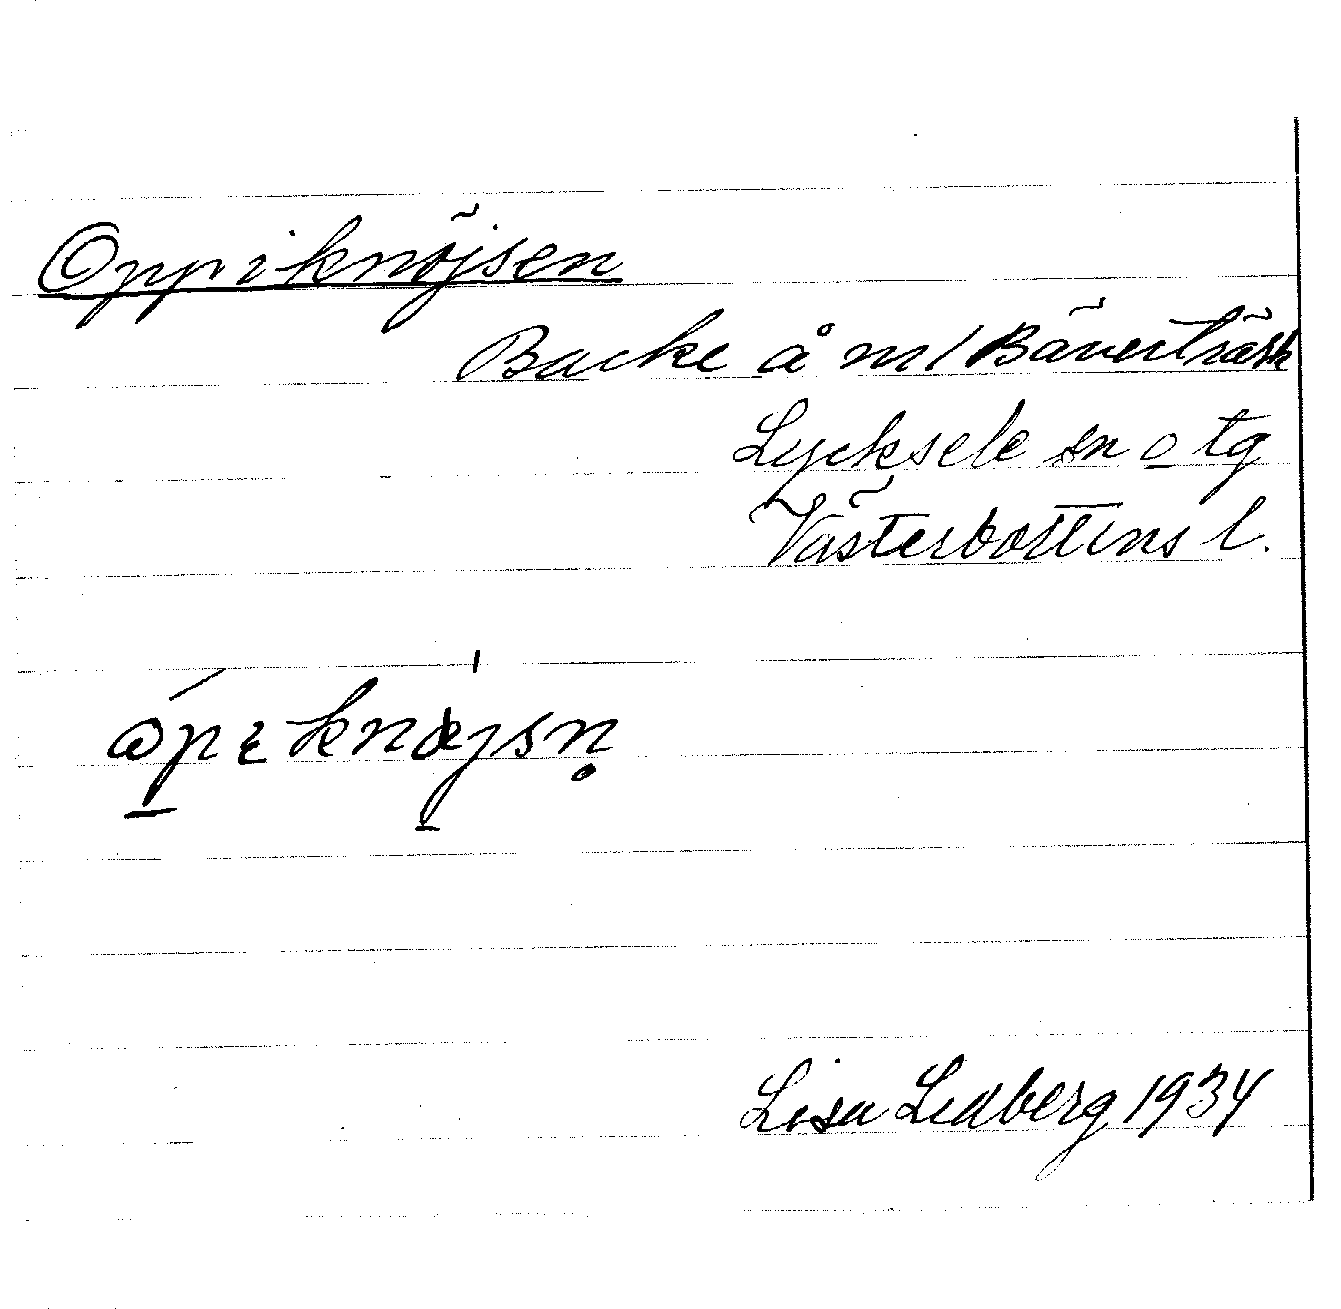 Oppiknöjsen
Backe å m/ Bäverträsk
Lycksele sn o tg
Västerbottens l.
Lisa Lidberg 1934